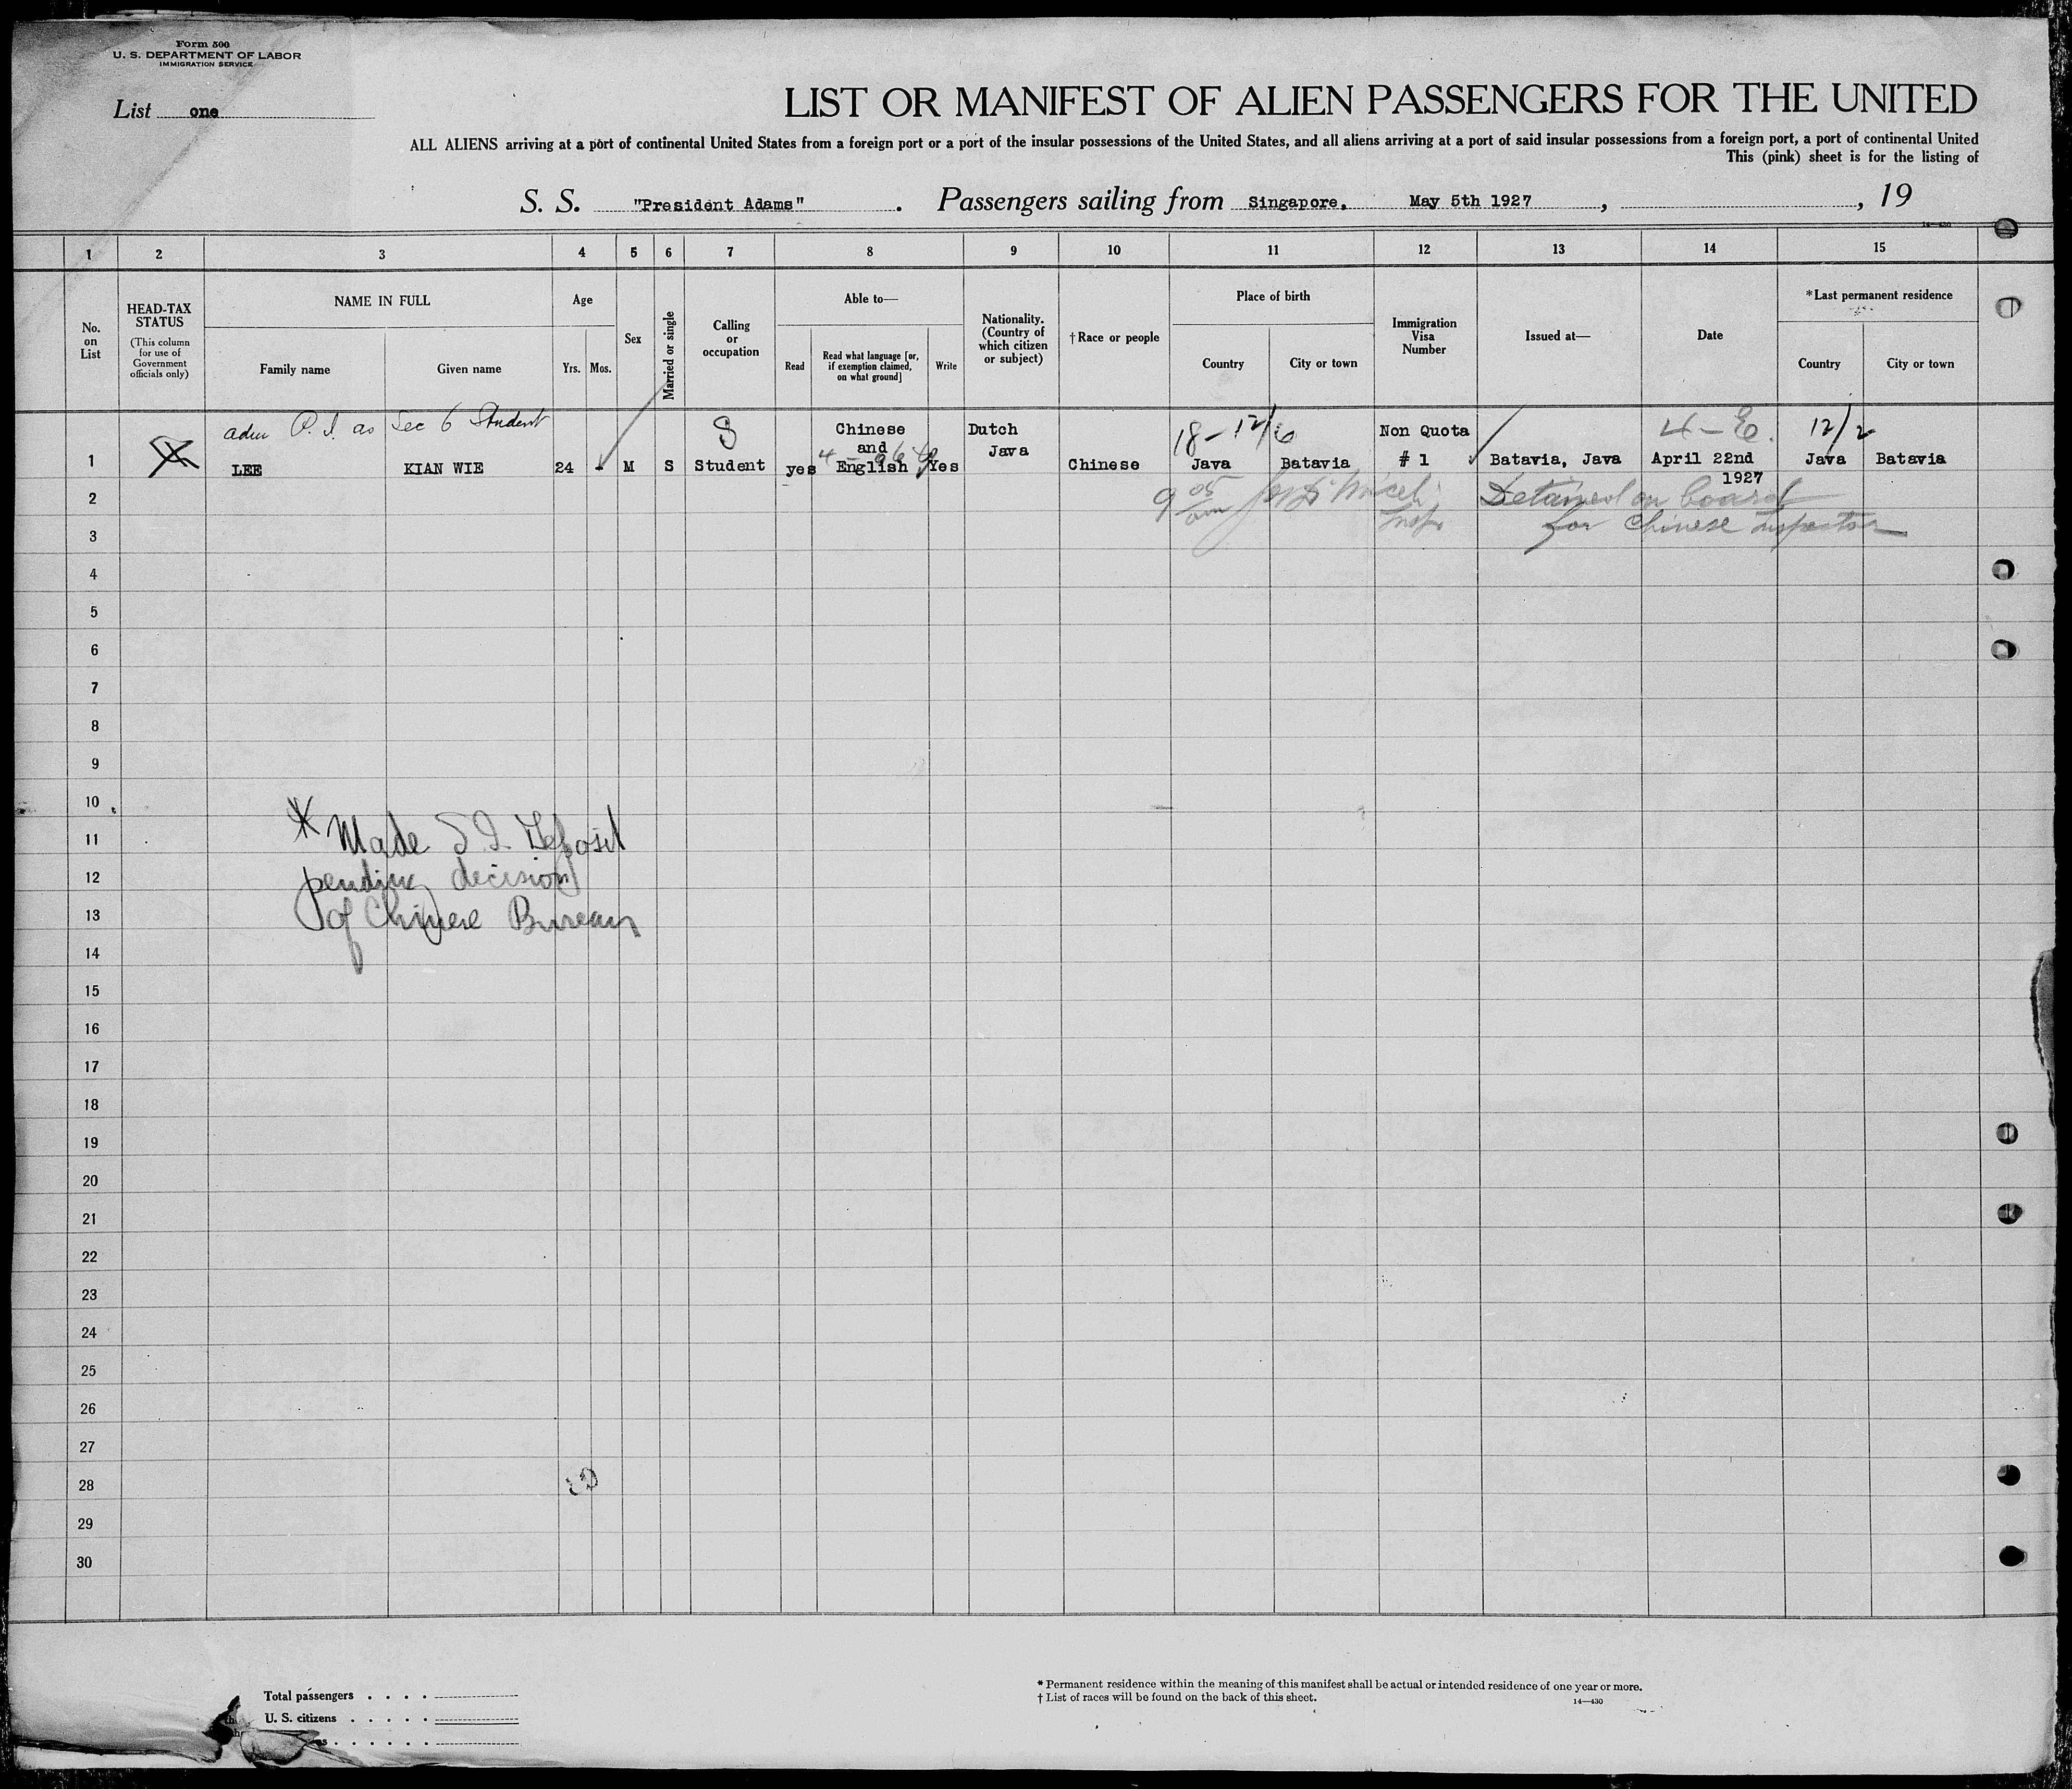 Form 500
U. S. DEPARTMENT OF LABOR
IMMIGRATION SERVICE
List one
LIST OR MANIFEST OF ALIEN PASSENGERS FOR THE UNITED
ALL ALIENS arriving at a port of continental United States from a foreign port or a port of the insular possessions of the United States, and all aliens arriving at a port of said insular possessions from a foreign port, a port of continental United
This (pink) sheet is for the listing of
S. S. "President Adams". Passengers sailing from Singapore, May 5th 1927, , 19
14—430
1 2 3 4 5 6 7 8 9 10 11 12 13 14 15
No. on List
HEAD-TAX STATUS
(This column for use of Government officials only)
NAME IN FULL
Family name Given name
Age
Yrs. Mos.
Sex
Married or single
Calling or occupation
Able to—
Read
Read what language [or, if exemption claimed, on what ground]
Write
Nationality. (Country of which citizen or subject)
† Race or people
Place of birth
Country City or town
Immigration Visa Number
Issued at—
Date
*Last permanent residence
Country City or town
adm P. I. as Sec 6 Student S 18-12/6 4-E. 12/2
1 LEE KIAN WIE 24 - M S Student yes Chinese and English Yes Dutch Java Chinese Java Batavia Non Quota # 1 Batavia, Java April 22nd 1927 Java Batavia
2 9 05 am Detained on board
3 Insp. for Chinese Inspector
4
5
6
7
8
9
10
11 * Made S I Deposit
12 pending decision
13 of Chinese Bureau
14
15
16
17
18
19
20
21
22
23
24
25
26
27
28
29
30
Total passengers . . . .
U. S. citizens . . . . .
* Permanent residence within the meaning of this manifest shall be actual or intended residence of one year or more.
† List of races will be found on the back of this sheet. 14—430